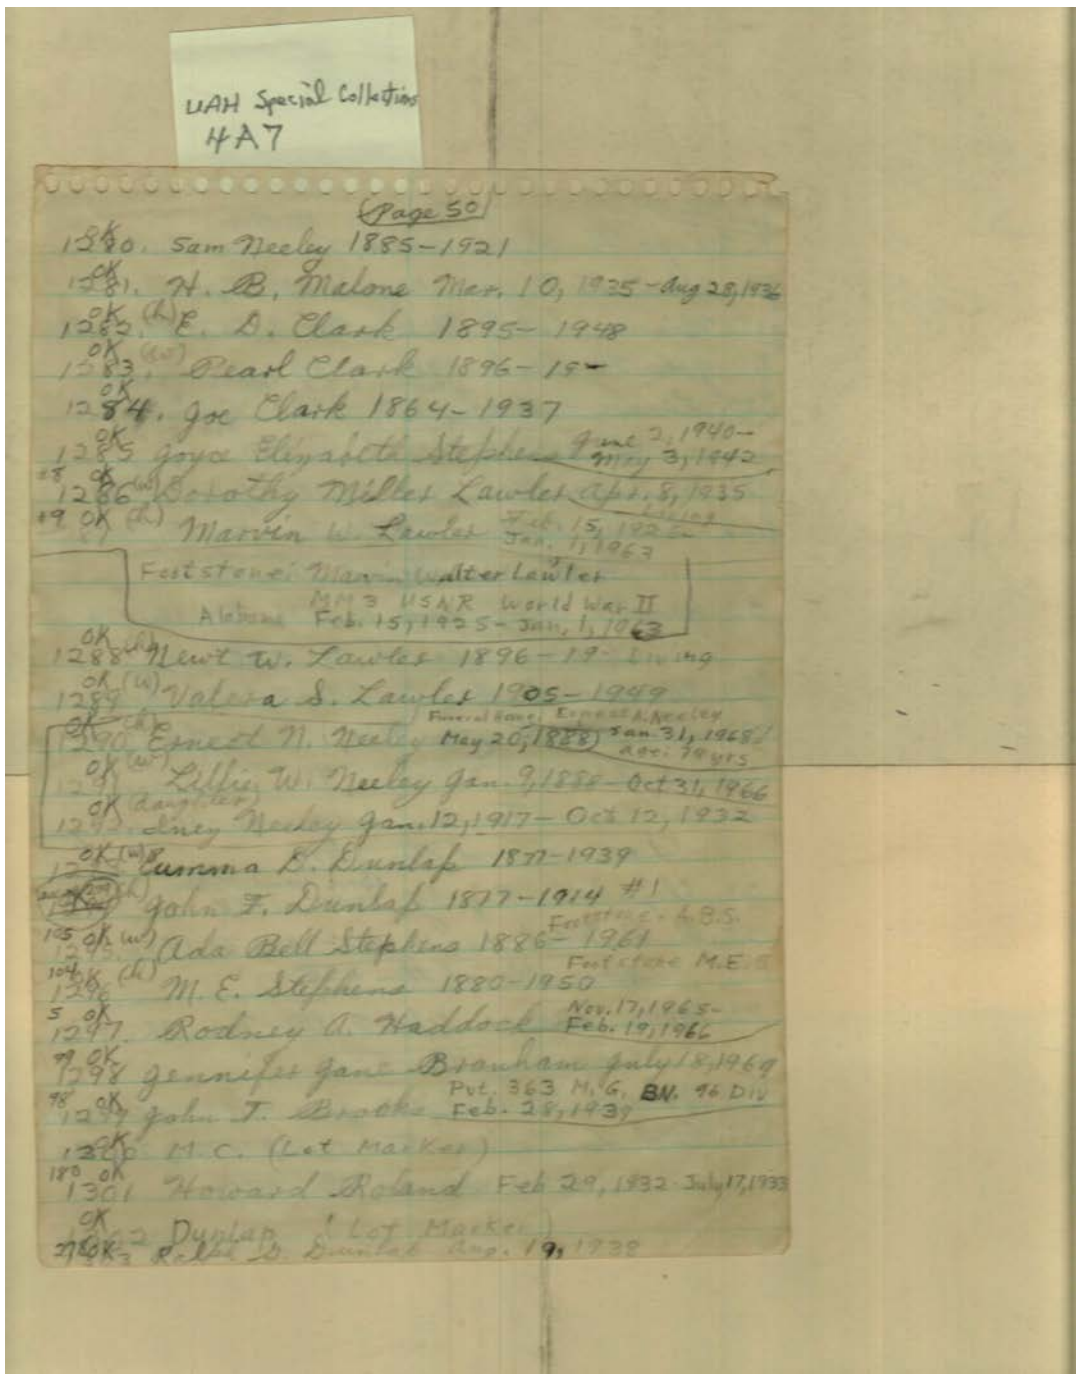 UAH Special Collections
4A7
Page 50
OK
1280. Sam Neeley 1885-1921
OK
1281. H. B. Malone Mar. 10, 1935-Aug 28, 1936
OK (h)
1282. E. D. Clark 1895-1948
OK (w)
1283. Pearl Clark 1896-19-
OK
1284. Joe Clark 1864-1937
OK June 2, 1940-
1285 Joyce Elizabeth Stephens May 3, 1942
#8 OK
1286 (w) Dorothy Miller Lawler Apr. 8, 1935
living
#9 OK (h) Feb. 15, 1925-
Marvin W. Lawler Jan. 1, 1963
Footstone: Marvin Walter Lawler
MM3 USNR World War II
Alabama Feb. 15, 1925-Jan. 1, 1963
OK (h)
1288 Newt W. Lawler 1896-19- Living
OK (w)
1289 Valera S. Lawler 1905-1949
Funeral Home: Ernest A. Neeley
OK (h)
1290 Ernest N. Neeley May 20, 1888) Jan. 31, 1968
age: 79 yrs
OK (w)
Lillie W. Neeley Jan. 9, 1888-Oct 31, 1966
OK (daughter)
1292. Neeley Jan. 12, 1917-Oct 12, 1932
OK (w)
Eumma D. Dunlap 1877-1939
(h)
John F. Dunlap 1877-1914 #1
Footstone - A.B.S.
105 OK (w)
1295. Ada Bell Stephens 1886-1961
Footstone M.E.S
104 OK (h)
1296 M. E. Stephens 1880-1950
5 OK Nov. 17, 1965-
1297. Rodney A. Haddock Feb. 19, 1966
99 OK
1298 Jennifer Jane Branham July 18, 1969
Pvt. 363 M.G. BN. 96 Div
98 OK
1299 John T. Brooks Feb. 28, 1939
OK
1300 M.C. (Lot Marker)
180 OK
1301 Howard Roland Feb 29, 1932-July 17, 1933
OK
1302 Dunlap (Lot Marker)
OK D. Dunlap Aug. 19, 1938